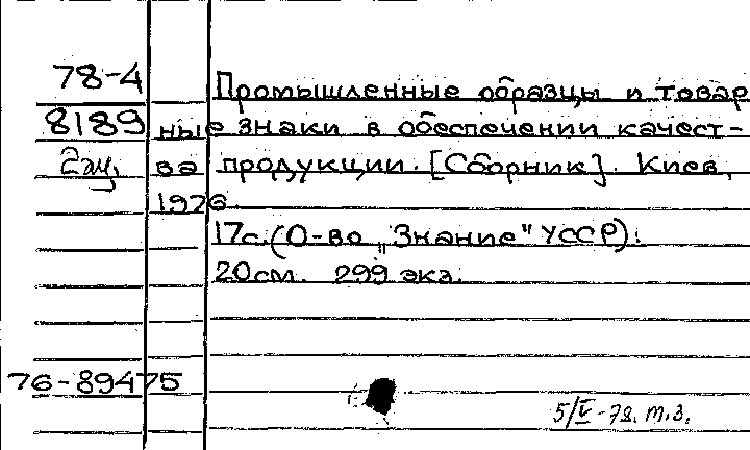 78-4
Промышленные образцы и товар
8189 ные знаки в обеспечении качест-
2 экз. ва продукции. [Сборник]. Киев,
1976.
17с. (О-во „Знание" УССР).
20см. 299 экз.
76-89475
5/V-78. т.з.